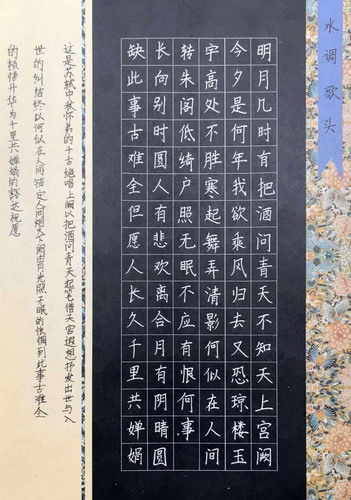 水调歌头
明月几时有把酒问青天不知天上宫阙
今夕是何年我欲乘风归去又恐琼楼玉
宇高处不胜寒起舞弄清影何似在人间
转朱阁低绮户照无眠不应有恨何事
长向别时圆人有悲欢离合月有阴晴圆
缺此事古难全但愿人长久千里共婵娟
这是苏轼中秋怀弟的千古绝唱上阕以把酒问青天起笔借天宫遐想抒发出世与入
世的纠结终以何似在人间锚定人间烟火下阕由月光照无眠的怅惘到此事古难全
的顿悟升华为千里共婵娟的豁达祝愿